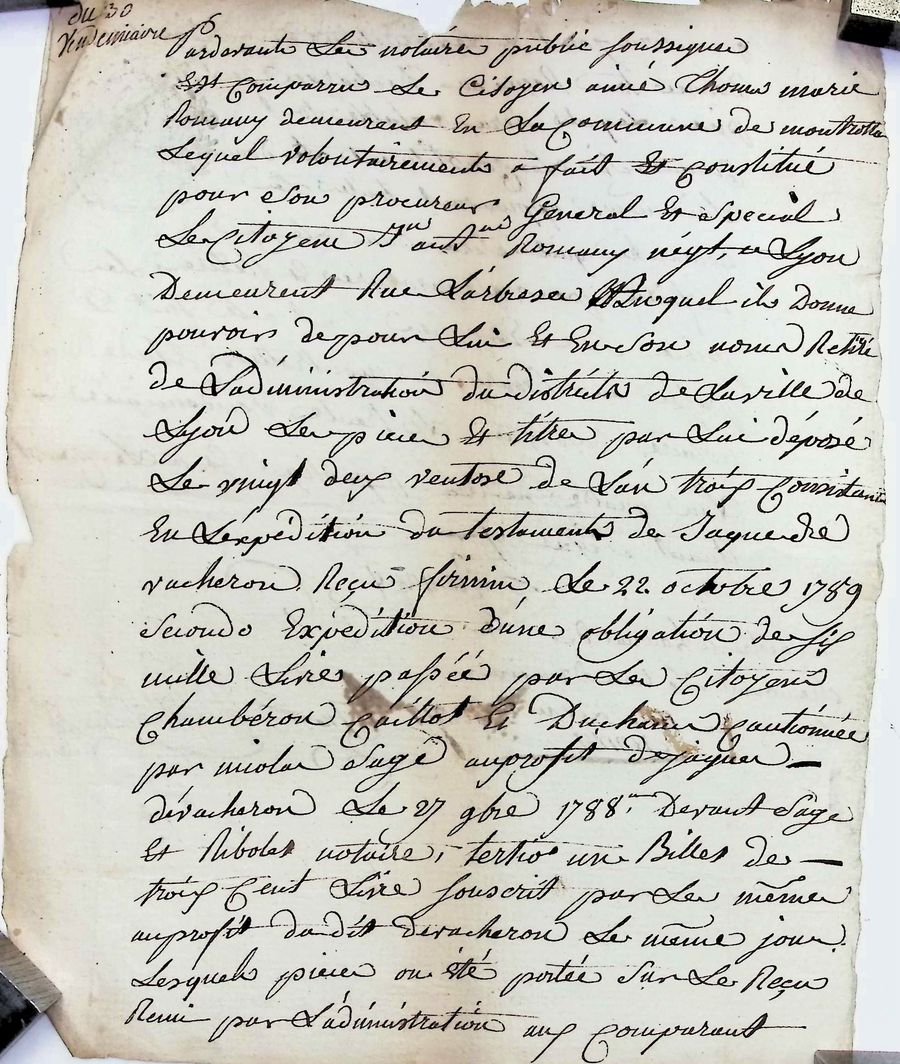 du 30
Vendemiaire
Pardevant Le notaire public soussigne
Est Comparru Le Citoyen aimé Thoma marie
Romany demeurant En La Commune de montrotta
Lequel volontairement a fait Et Constitué
pour son procureur General Et special
Le Citoyen Romany négt, a Lyon
Demeurent Rue L'arbresse Auquel il Donne
pouvoir de pour Lui Et En Son nom Retiré
de L'administration du district de La ville de
Lyon Le piece Et titre par Lui déposé
Le vingt deux ventose de L'an trois Consistant
En L'expédition du testament de Jaque de
vacheron Reçu firmin, Le 22 octobre 1789
Secondo Expédition d'une obligation de six
mille Livre passée par Le Citoyens
Chambéron Caillot Et Ducharne Cautionnée
par nicola Sage au profit de jaques
dévacheron Le 27 9bre 1788 Devant Sage
Et Ribolet notaire, tertio un Billet de
trois Cent Livre souscrit par Le même
au profit du dit devacheron Le même jour.
Lesquels piece on été portée sur Le Reçu
Remi par L'administration aux Comparant